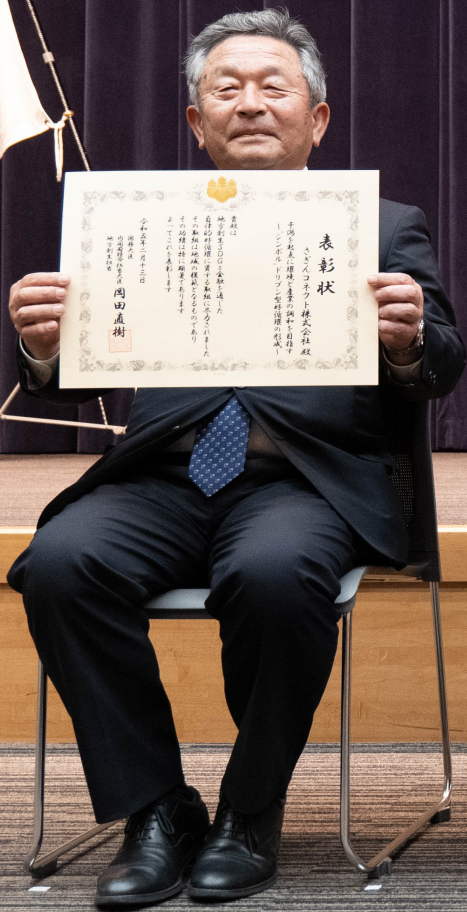 表彰状
さぎんコネクト株式会社 殿
干潟を起点に環境と産業の調和を目指す
～シンボル・ドリブン型好循環の形成～
貴殿は
地方創生SDGs金融を通した
自律的好循環に資する取組に尽力されました
その取組は地域の模範となるものであり
その功績は特に顕著であります
よってこれを表彰します
令和五年二月十三日
国務大臣
内閣府特命担当大臣
地方創生担当
岡田直樹